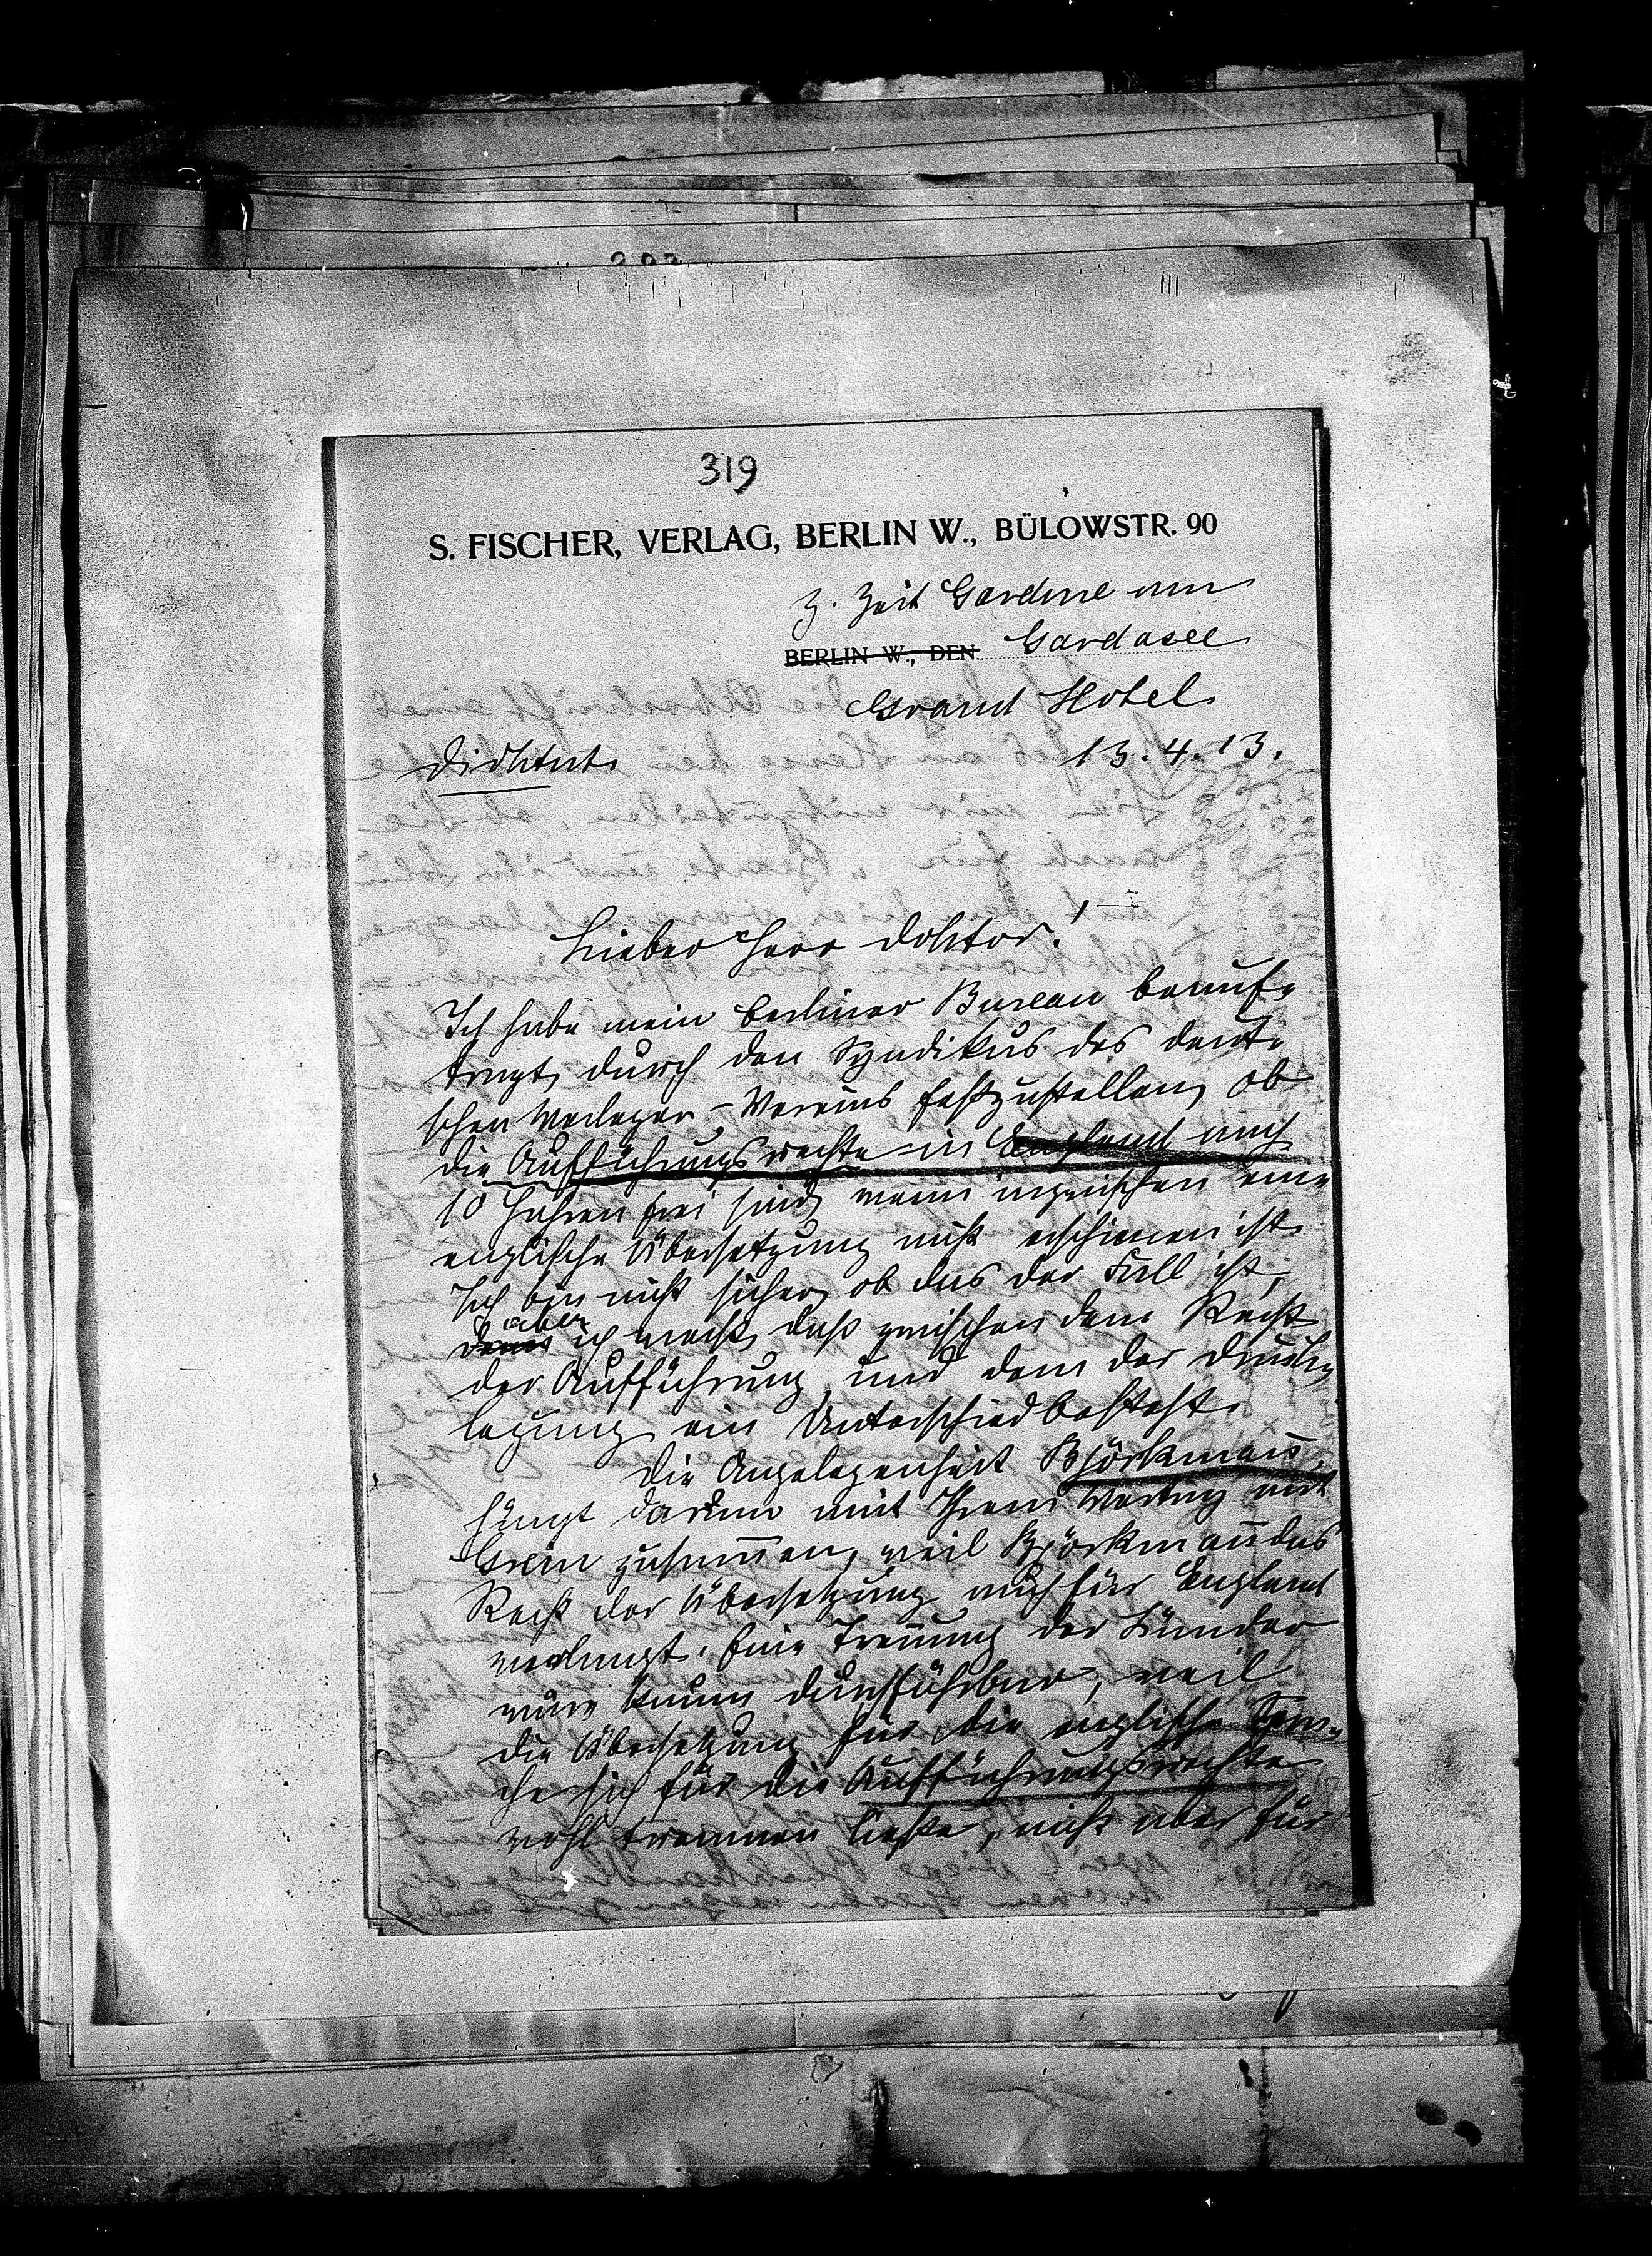 319
S. FISCHER, VERLAG, BERLIN W., BÜLOWSTR. 90
z. Zeit Gardone am
BERLIN W., DEN Gardasee
Grand Hotel
Diktat. 13.4.13.
Lieber Herr Doktor!
Ich habe mein Berliner Bureau beauf-
tragt, durch den Syndikus des deut-
schen Verleger-Vereins festzustellen, ob
die Aufführungsrechte in England nach
10 Jahren frei sind, wenn inzwischen eine
englische Übersetzung nicht erschienen ist.
Ich bin nicht sicher, ob das der Fall ist,
aber
denn ich weiß, daß zwischen dem Recht
der Aufführung und dem der Druck-
legung ein Unterschied besteht.
Die Angelegenheit Björkman
hängt darum mit Ihrem Vertrag mit
Grein zusammen, weil Björkman das
Recht der Übersetzung auch für England
verlangt. Eine Trennung der Länder
wäre kaum durchführbar, weil
die Übersetzung für die englische Spra-
che sich für die Aufführungsrechte
wohl trennen ließe, nicht aber für